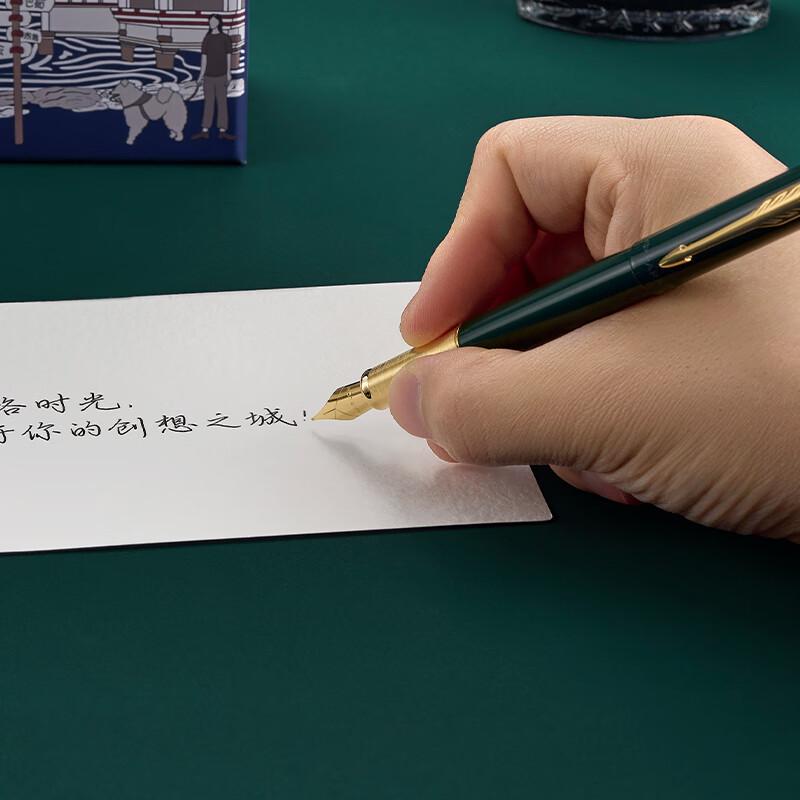 时光.
你的创想之城!
PARKER